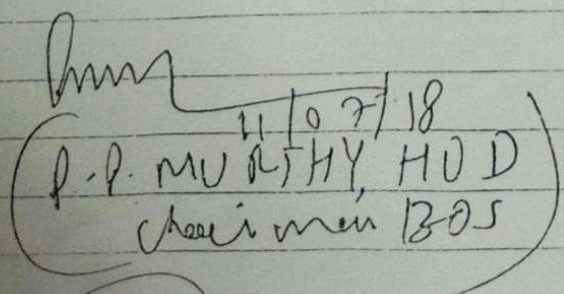 11/07/18
P.P. MURTHY, HOD
Chairman BOS